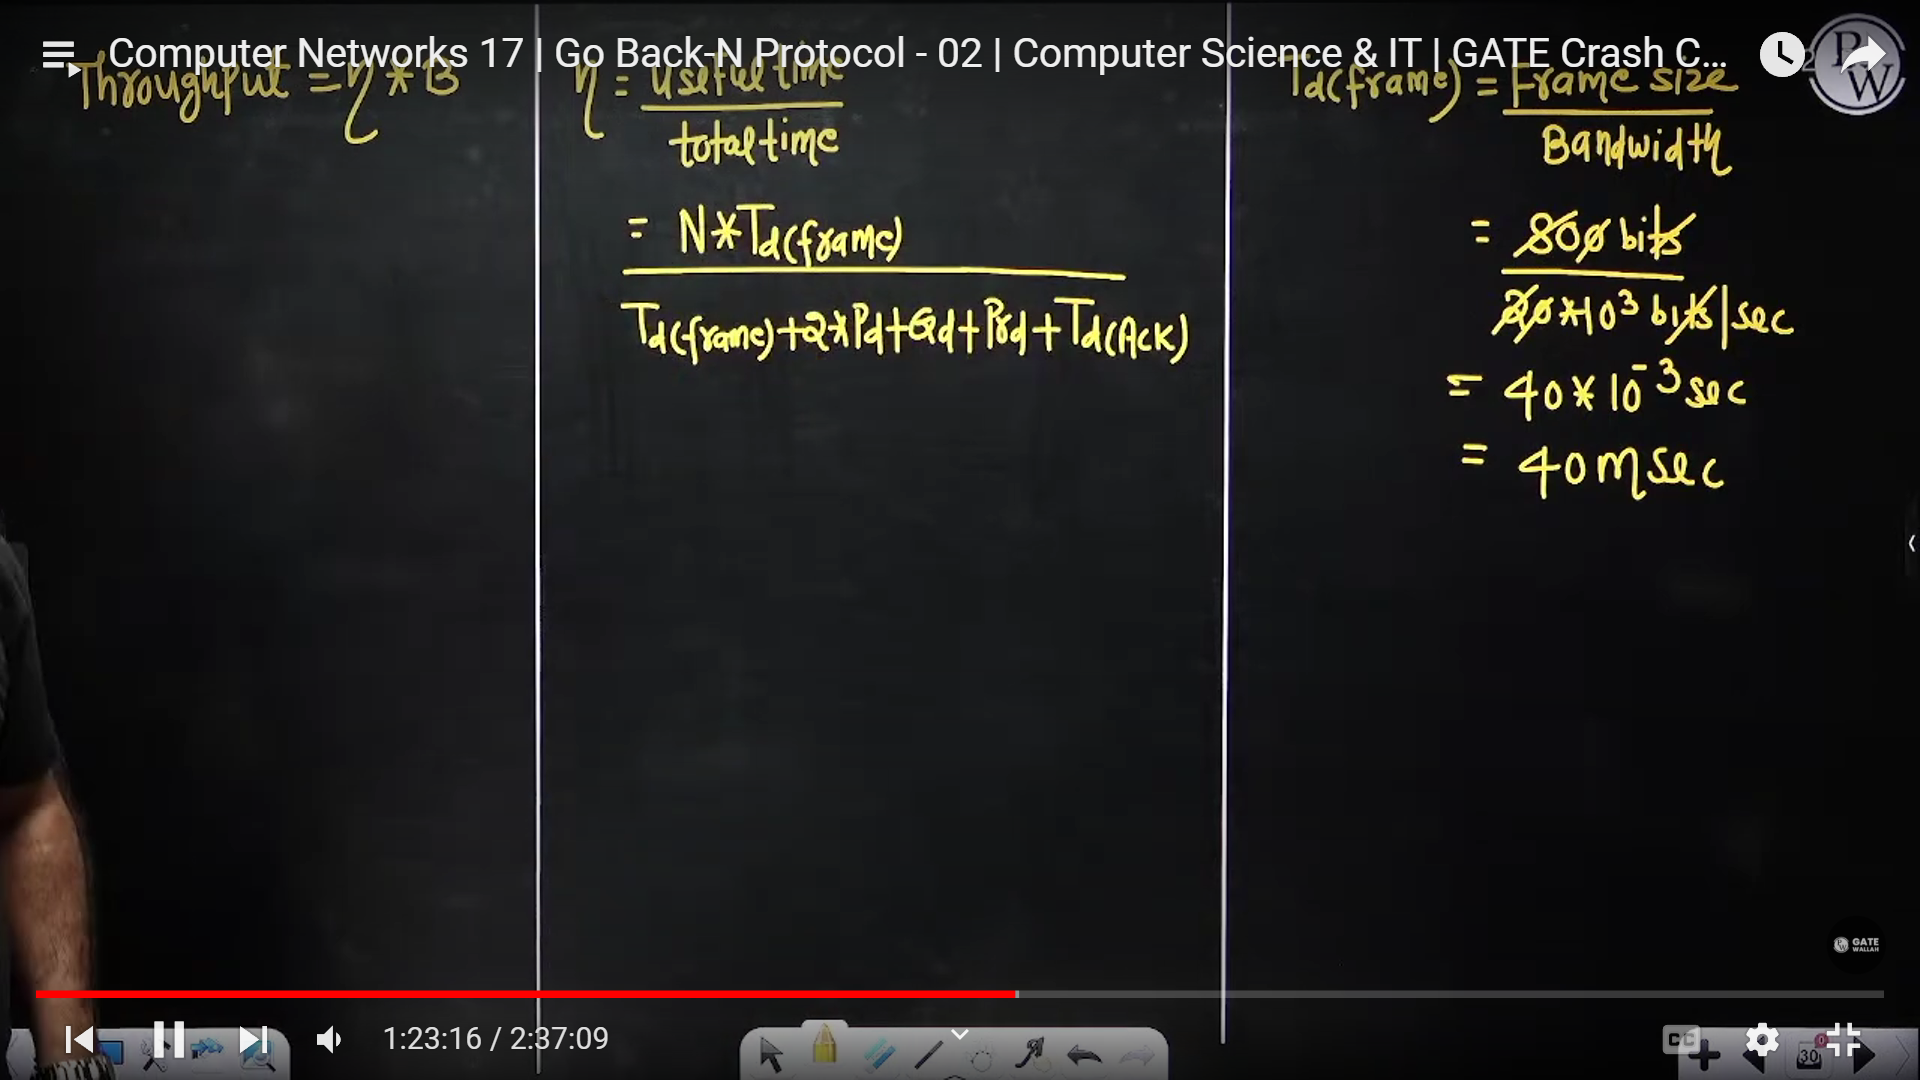 Computer Networks 17 | Go Back-N Protocol - 02 | Computer Science & IT | GATE Crash C...
Throughput = η * B
η = useful time
total time
= N*Td(frame)
Td(frame)+2*Pd+Qd+Prd+Td(Ack)
Td(frame) = Frame size
Bandwidth
= 800 bits
20*10³ bits/sec
= 40*10⁻³ sec
= 40msec
GATE
WALLAH
1:23:16 / 2:37:09
CC
30